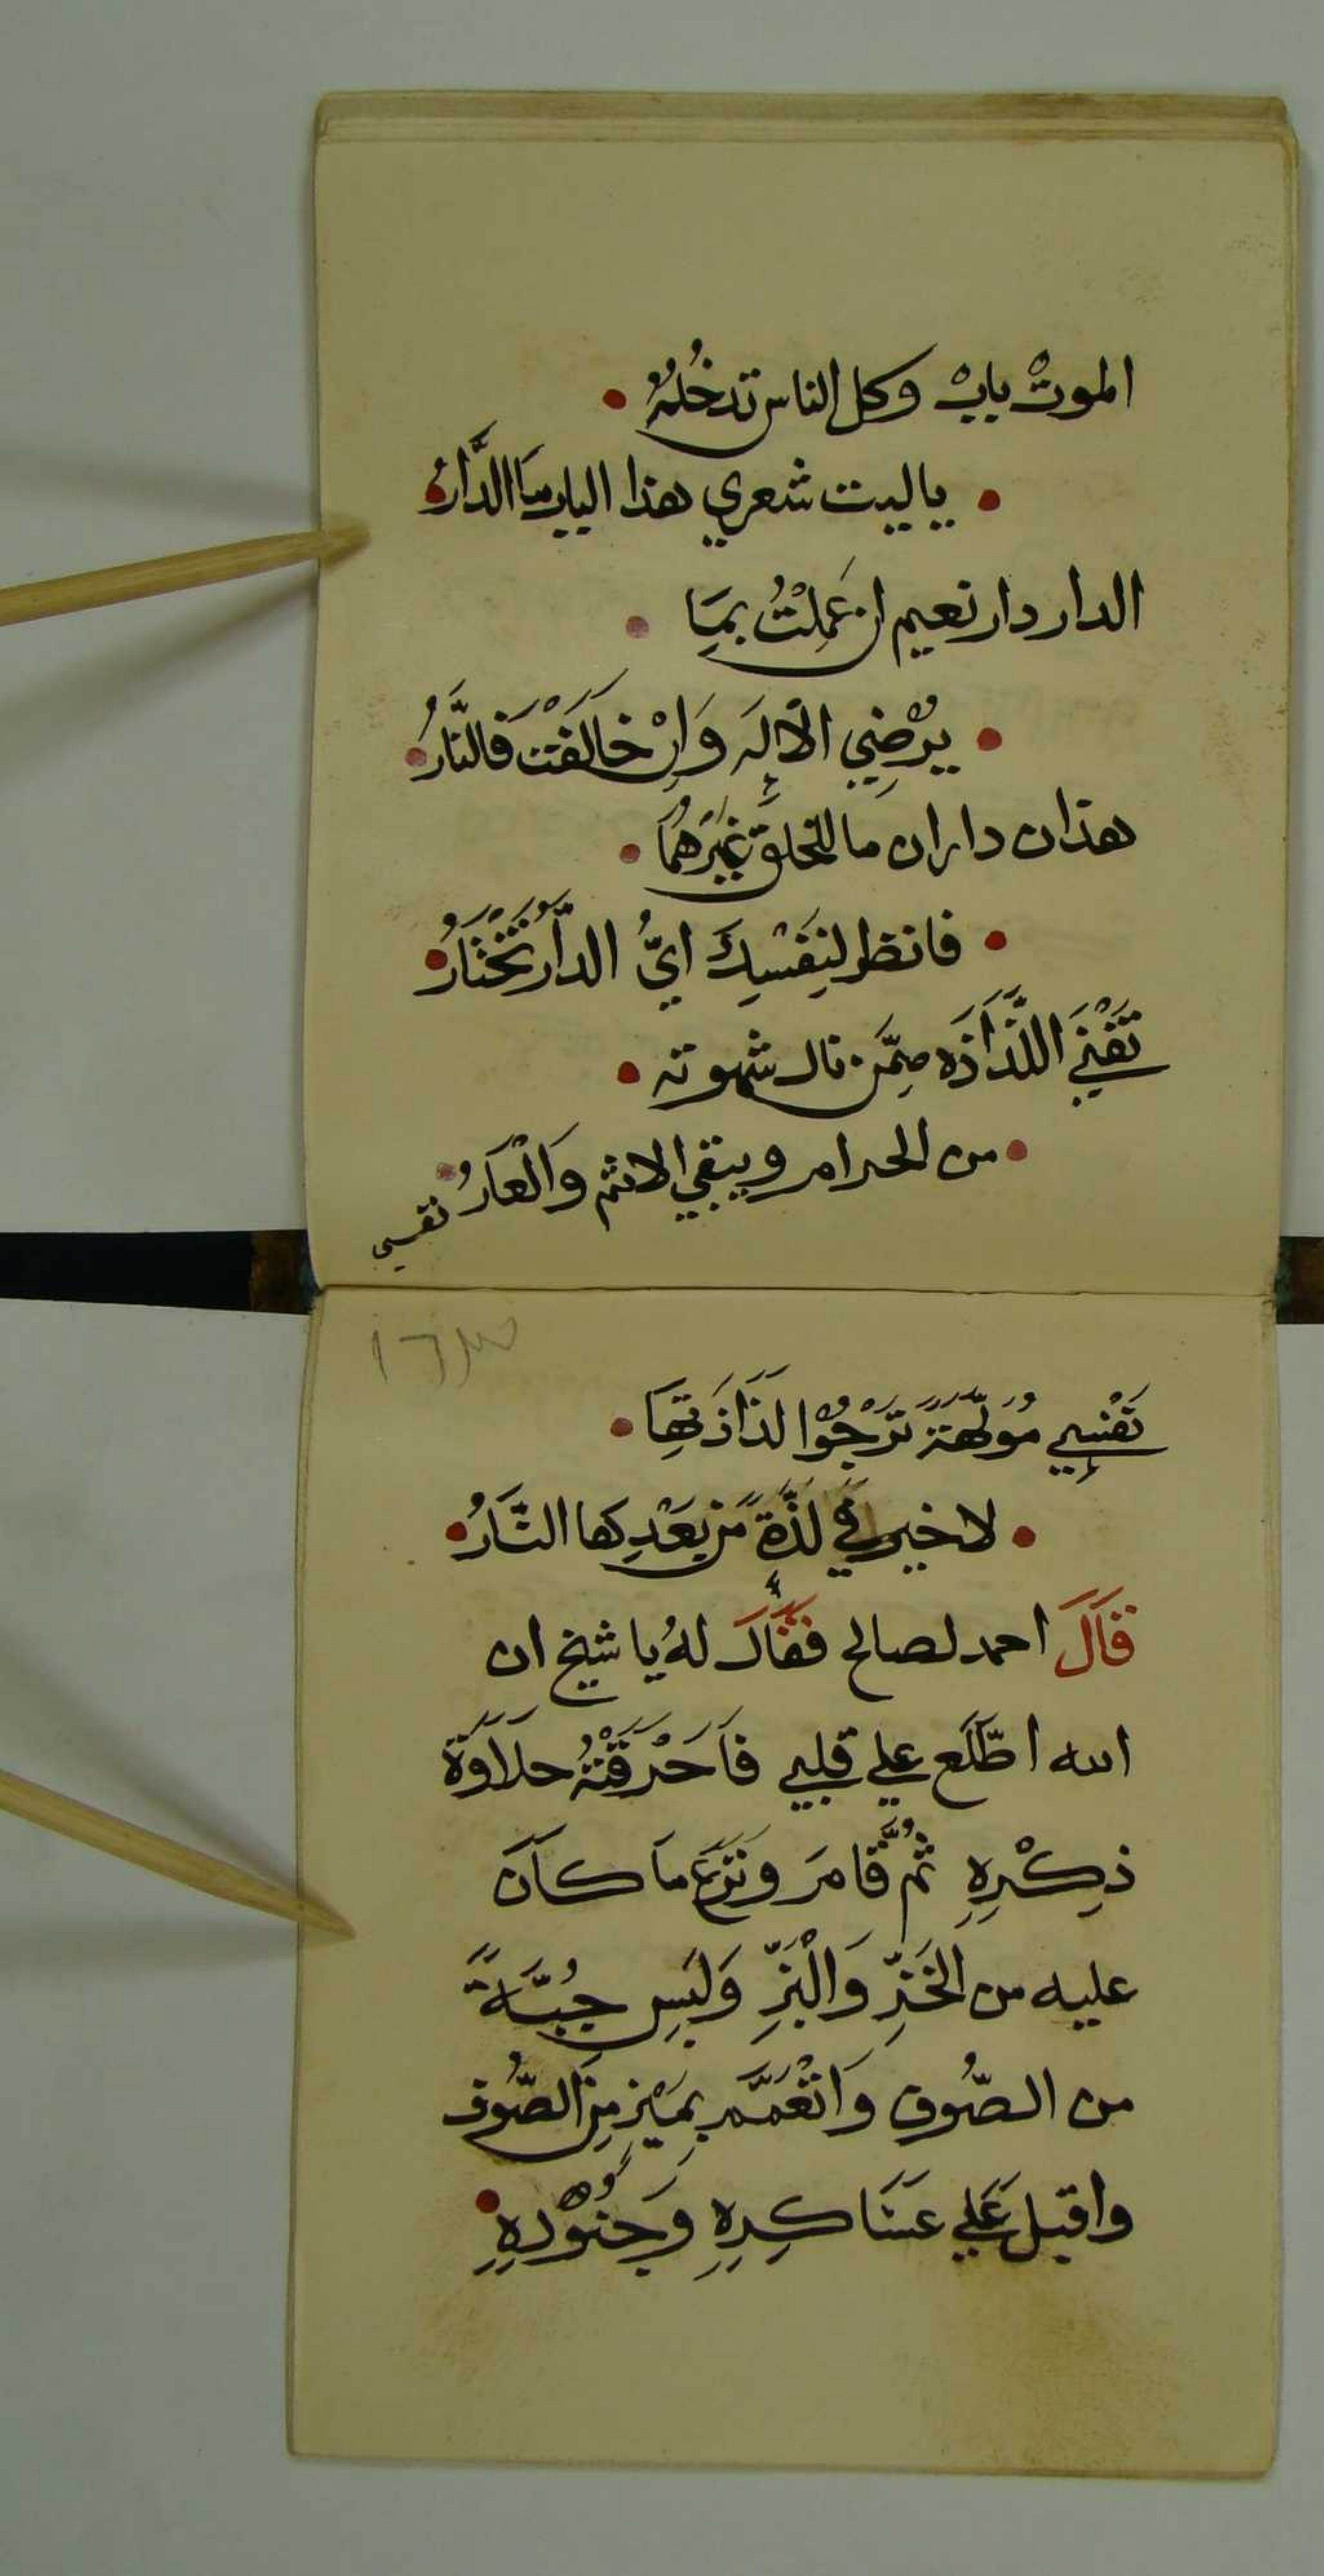 الموتْ بابْ وكل الناس تدخُلهُ •
• ياليت شعري هذا الباب ما الدَّارُ •
الدار دار نعيم ان عَمِلْتُ بمِاَ •
• يُرْضِي الاله وَاِنْ خالَفْتَ فَالنَّارُ •
هذان داران ما للخلق غيْرَهُمَا •
• فانظر لنِفَسْكَ ايُّ الدَّارِ تَخْتَارُ •
تَفْنَي اللَّذَاذَه مِمَّن نال شهوته •
• من الحرام ويبقي الاثم وَالْعَارُ •
نفسي
نَفْسِي مُوَلَّهَةً تَرْجُوْا لَذَاذَتِهَا •
• لاخير في لذَّةٍ من بَعْدِها النَّارُ •
قَالَ احمد لصالح فقَالَ لهُ يا شيخ ان
الله اطَّلَع علي قلبي فَاَحْرَقَتْهُ حلَاوَة
ذِكْرِهِ ثُمَّ قَامَ ونَزَعَ ماَ كاَنَ
عليه من الْخَزِّ وَالْبَزِّ وَلَبِس جُبَّةً
من الصُّوف وَاتْعَمَّمَ بِمَيْزرٍ مِنَ الصُّوف
واقبل عَلَي عَسَاكِرِهِ وَجُنُوْدِهِ •